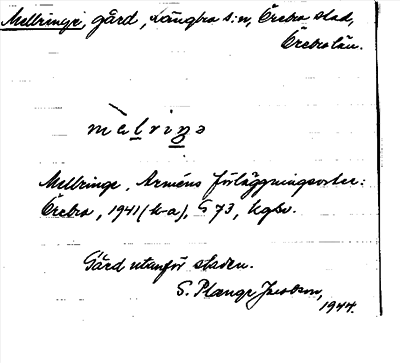 Mellringe, gård, Längbro s:n, Örebro stad,
Örebro län.
mèlriŋə
Mellringe. Arméns förläggningsorter:
Örebro, 1941 (h-a), § 73, Kgbr.
Gård utanför staden.
S. Plange Jacobson,
1944.